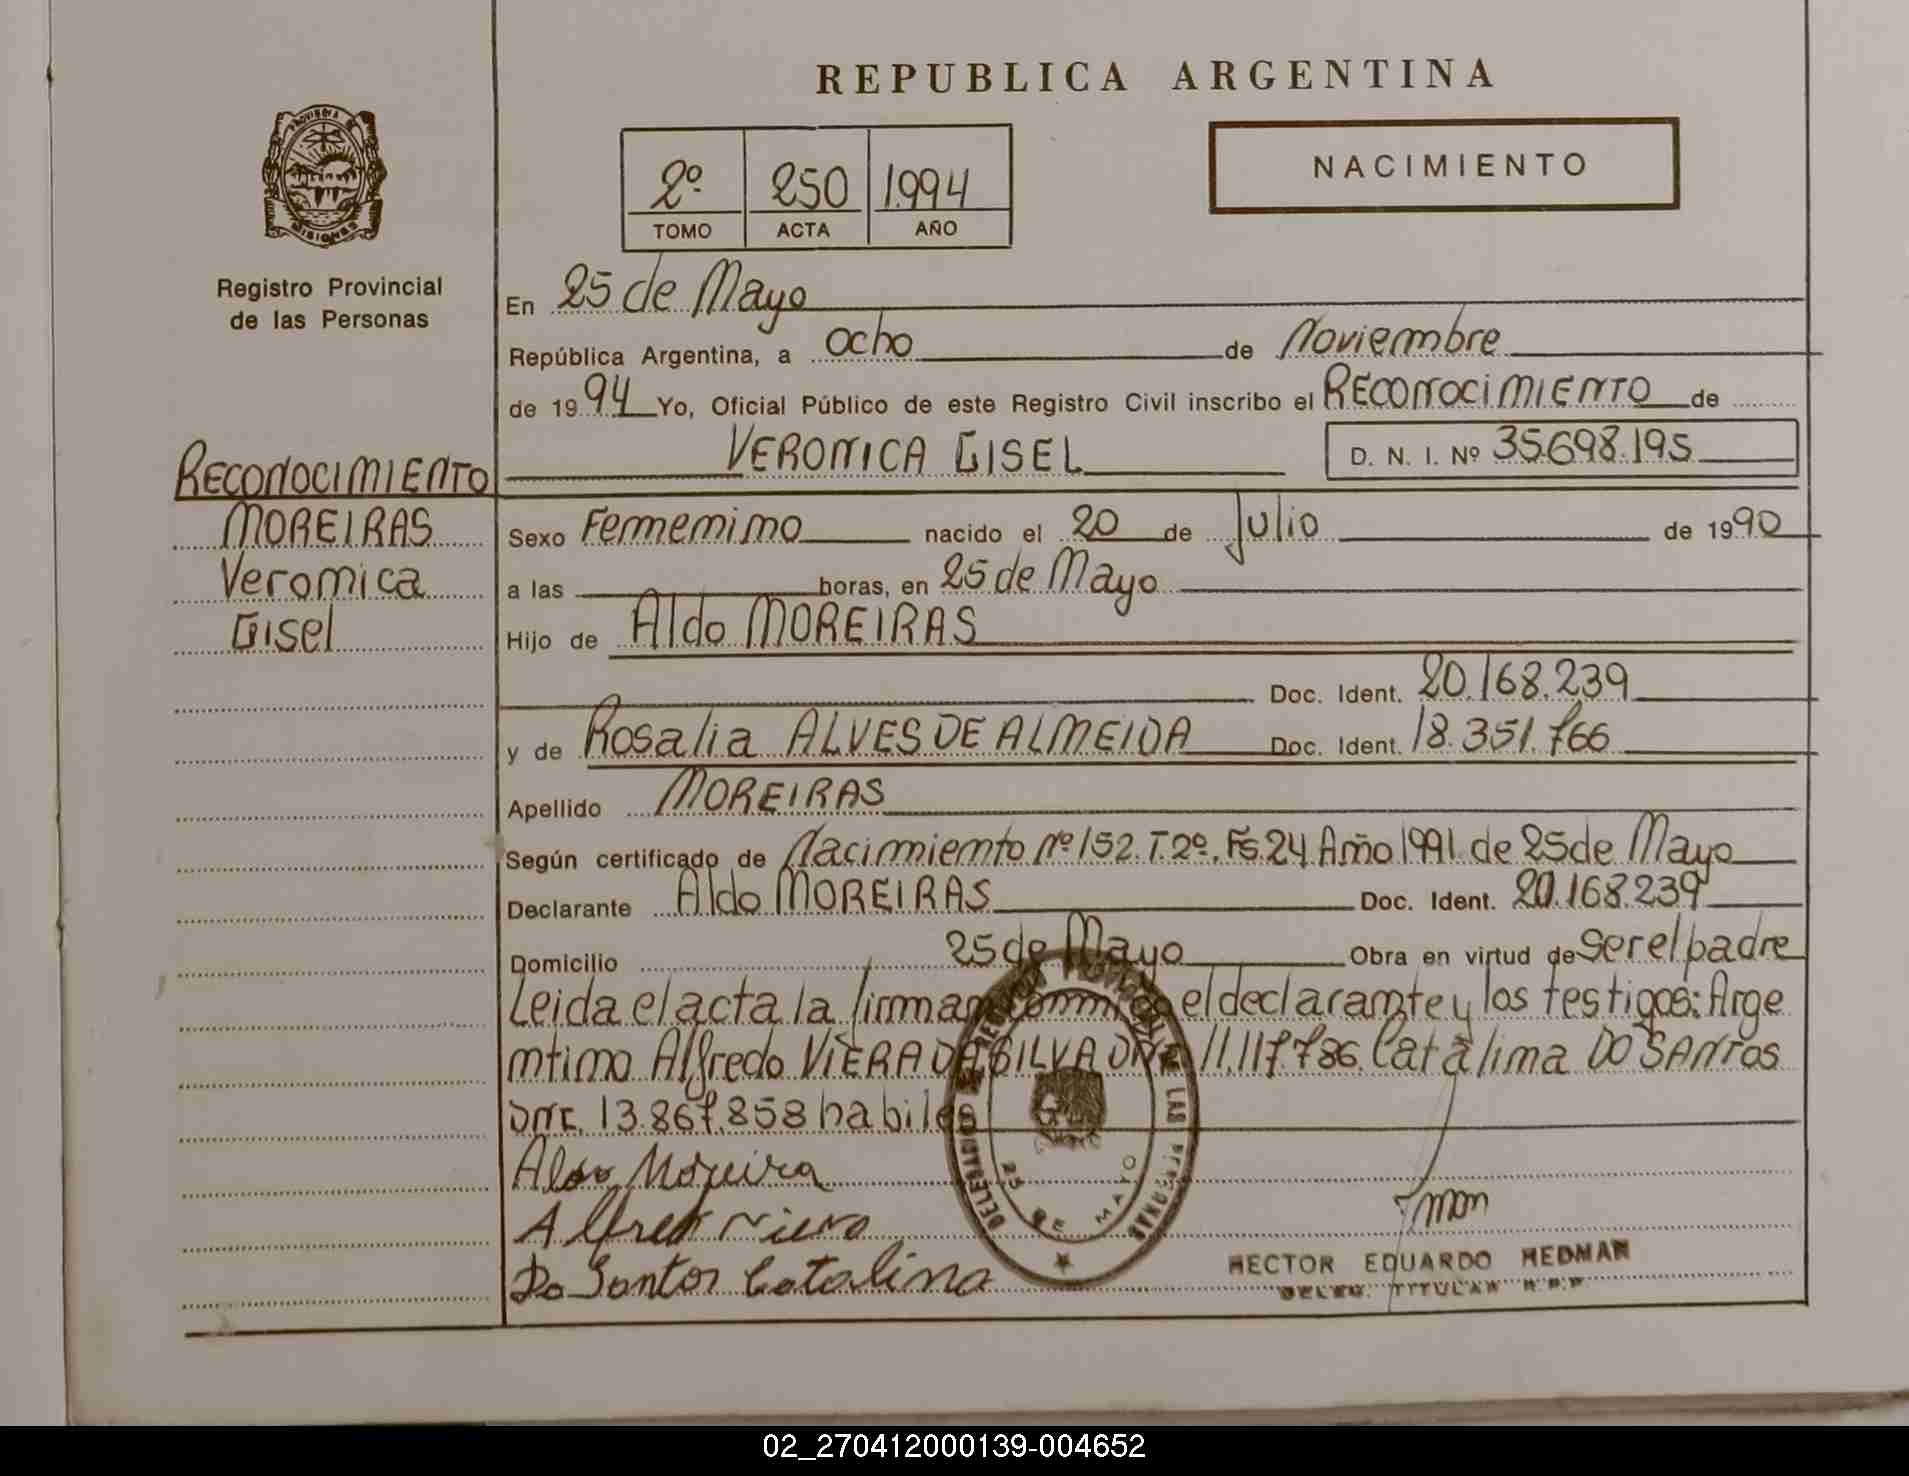 REPUBLICA ARGENTINA
2º 250 1.994
TOMO ACTA AÑO
NACIMIENTO
PROVINCIA DE
MISIONES
Registro Provincial
de las Personas
En 25 de Mayo
República Argentina, a ocho de Noviembre
de 1994 Yo, Oficial Público de este Registro Civil inscribo el RECONOCIMIENTO de
VERONICA GISEL D. N. I. Nº 35.698.195
RECONOCIMIENTO
MOREIRAS
Veronica
Gisel
Sexo Femenino nacido el 20 de Julio de 1990
a las horas, en 25 de Mayo
Hijo de Aldo MOREIRAS
Doc. Ident. 20.168.239
y de Rosalia ALVES DE ALMEIDA Doc. Ident. 18.351.766
Apellido MOREIRAS
Según certificado de Nacimiento Nº 152. T.2º. Fs.24 Año 1991 de 25 de Mayo
Declarante Aldo MOREIRAS Doc. Ident. 20.168.239
Domicilio 25 de Mayo Obra en virtud de Ser el padre
Leida el acta la firman conmigo el declarante y los testigos: Arge
ntino Alfredo VIERA DA SILVA DNI. 11.117.786. Catalina DO SANTOS
DNI. 13.867.858 habiles
Aldo Moreira
Do Santos Catalina
25 DE MAYO
HECTOR EDUARDO HEDMAN
DELEG. TITULAR R.P.P
02_270412000139-004652